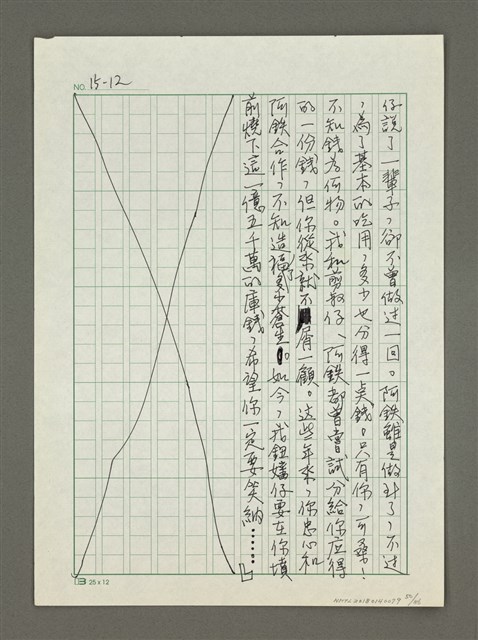 NO. 15-12
仔說了一輩子，卻不曾做过一回。阿鉄雖是做到了，不过
，為了基本的吃用，多少也分得一点錢。只有你，可尋！
不知錢為何物。我和剪刀仔、阿鉄都曾嘗試分給你应得
的一份錢，但你從來就不屑一顧。这些年來，你忠心和
阿鉄合作，不知造福多少蒼生。如今，我鈕嬸仔要在你墳
前燒下這一億五千萬的庫錢，希望你一定要笑納……」
25 x 12